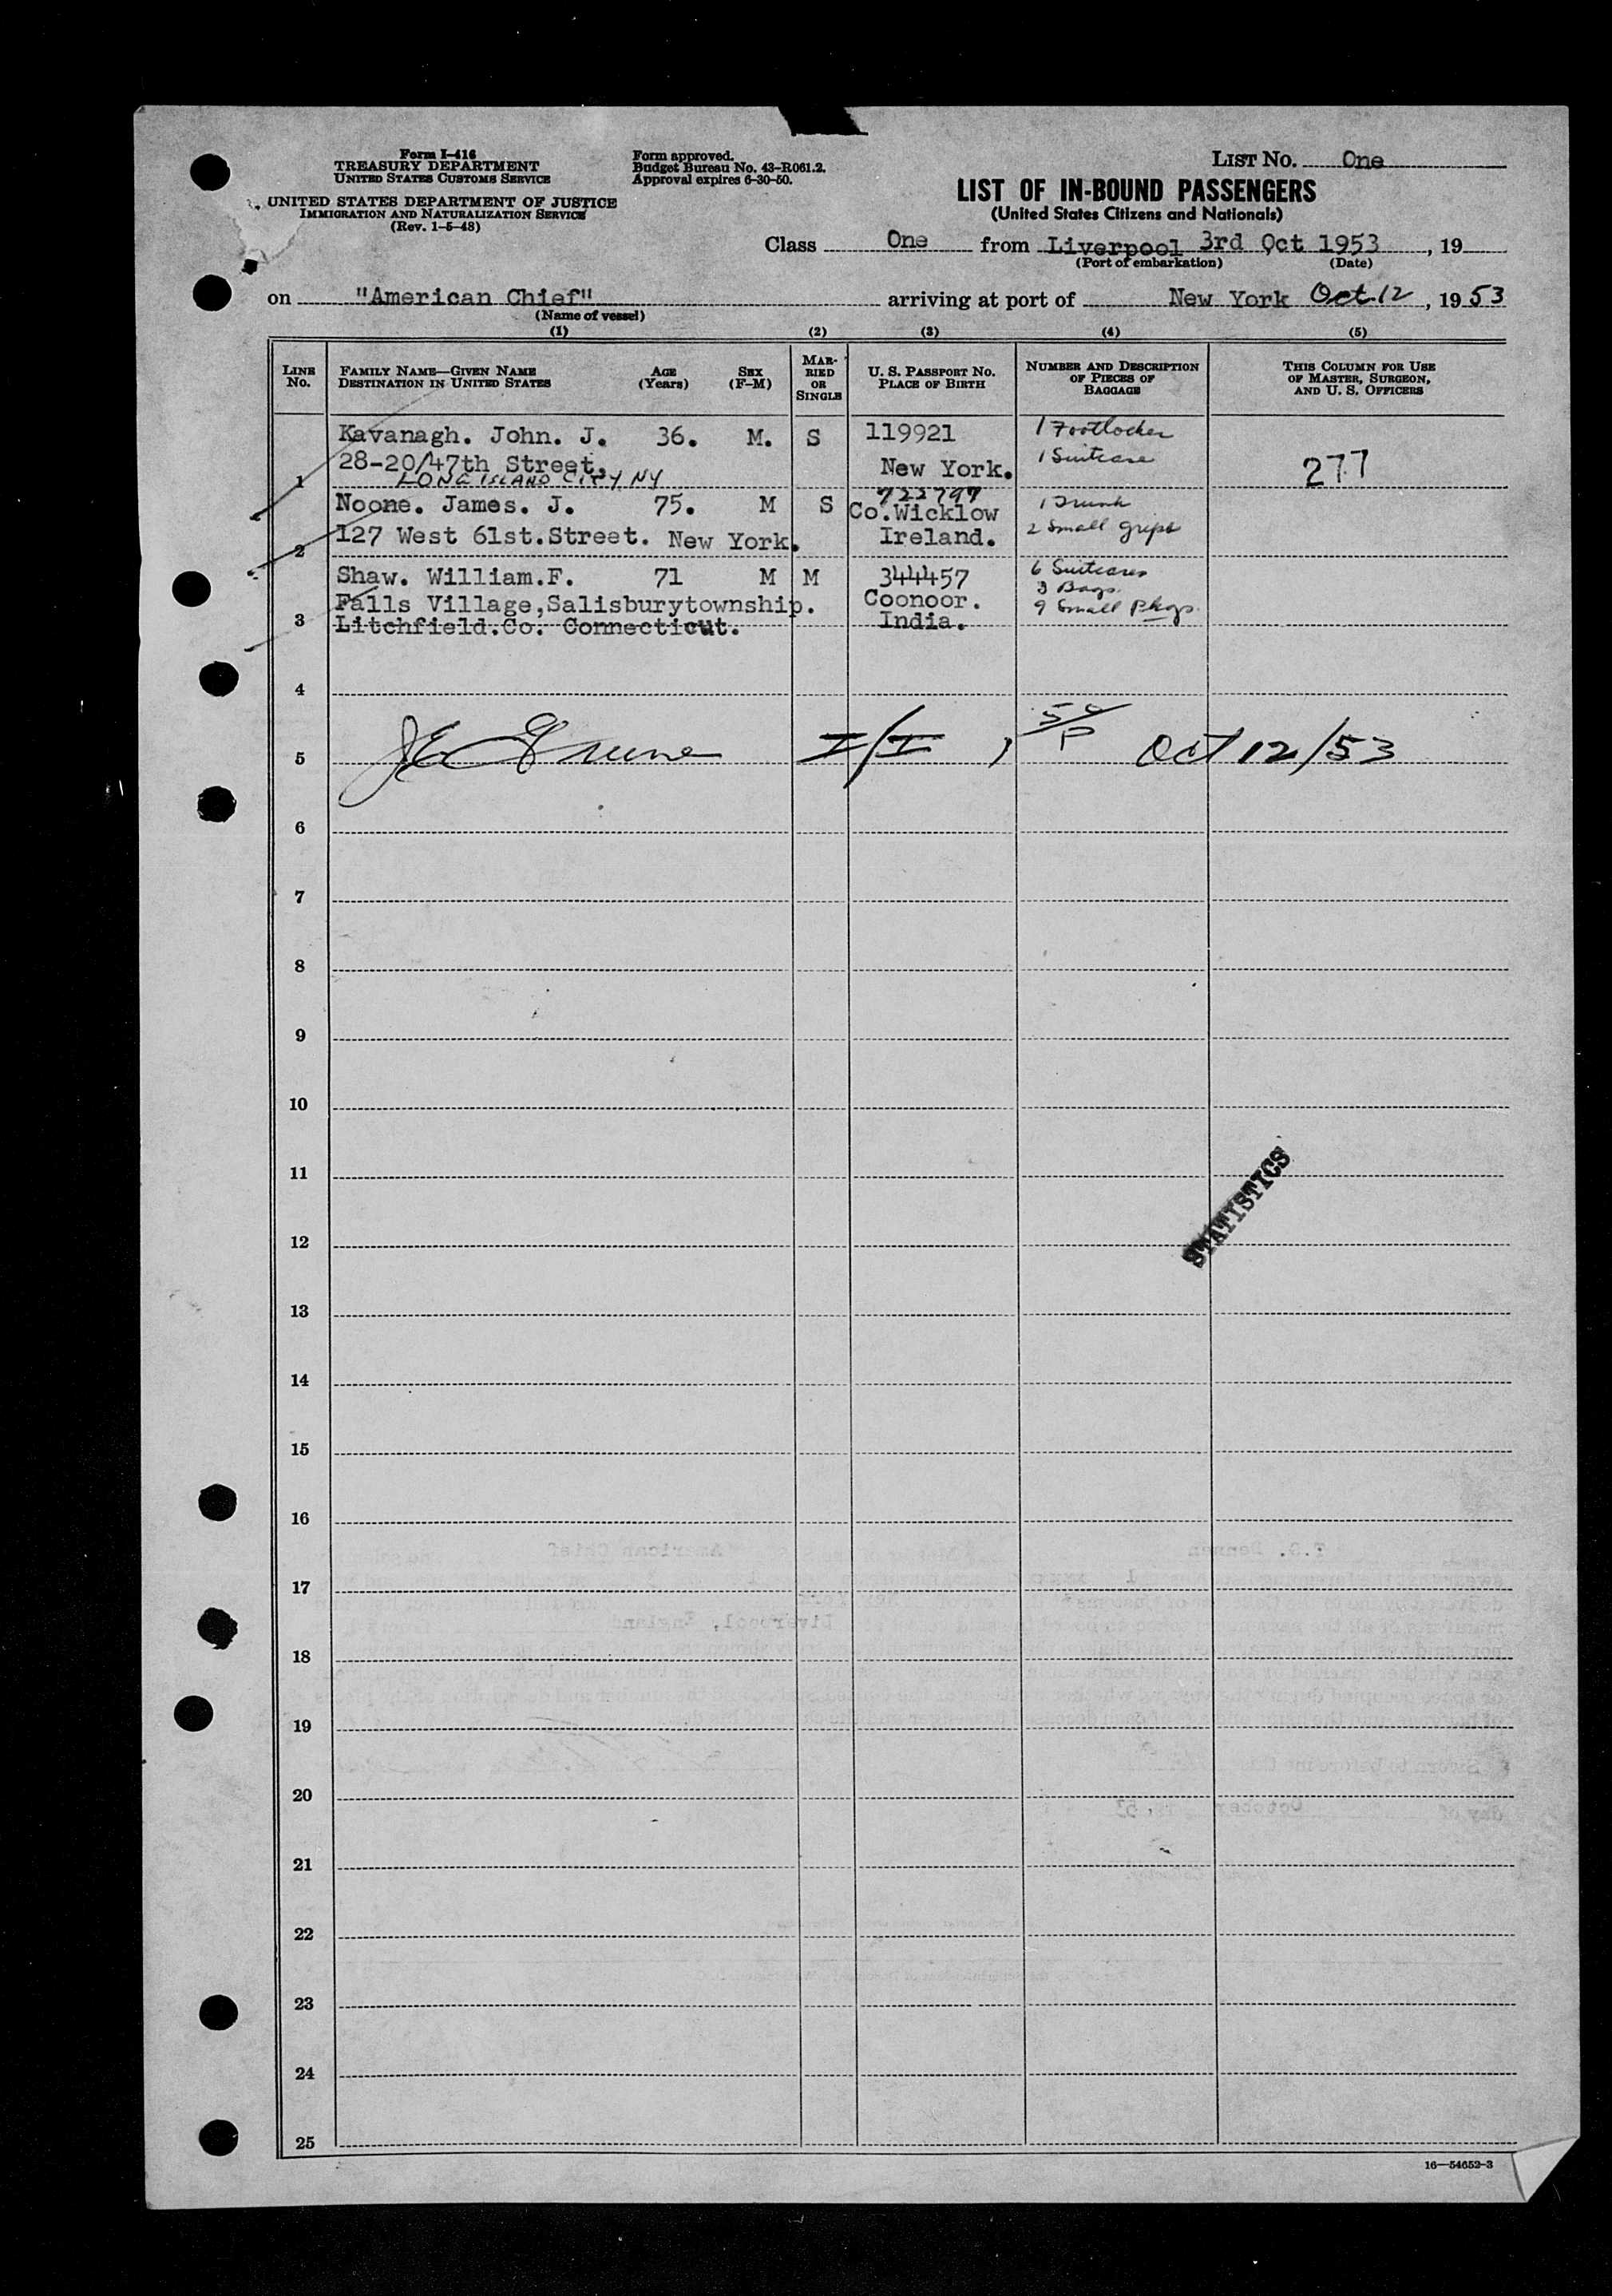 Form I-416
TREASURY DEPARTMENT
UNITED STATES CUSTOMS SERVICE
UNITED STATES DEPARTMENT OF JUSTICE
IMMIGRATION AND NATURALIZATION SERVICE
(Rev. 1-5-48)
Form approved.
Budget Bureau No. 43-R061.2.
Approval expires 6-30-50.
LIST NO. One
LIST OF IN-BOUND PASSENGERS
(United States Citizens and Nationals)
Class One from Liverpool 3rd Oct 1953, 19
(Port of embarkation) (Date)
on "American Chief" arriving at port of New York Oct 12, 1953
(Name of vessel)
(1) (2) (3) (4) (5)
LINE NO.
FAMILY NAME—GIVEN NAME
DESTINATION IN UNITED STATES
AGE (Years)
SEX (F-M)
MARRIED OR SINGLE
U. S. PASSPORT NO.
PLACE OF BIRTH
NUMBER AND DESCRIPTION OF PIECES OF BAGGAGE
THIS COLUMN FOR USE OF MASTER, SURGEON, AND U. S. OFFICERS
Kavanagh. John. J. 36. M. S 119921 1 Footlocker
28-20/47th Street. New York. 1 Suitcase 277
1 LONG ISLAND CITY NY
Noone. James. J. 75. M S 722797 Co.Wicklow 1 Trunk
2 127 West 61st.Street. New York. Ireland. 2 Small grips
Shaw. William.F. 71 M M 344457 6 Suitcases
Falls Village,Salisburytownship. Coonoor. 3 Bags
3 Litchfield.Co. Connecticut. India. 9 Small Pkgs.
4
5 I/I Oct 12/53
6
7
8
9
10
11
STATISTICS
12
13
14
15
16
17
18
19
20
21
22
23
24
25
16—54652-3